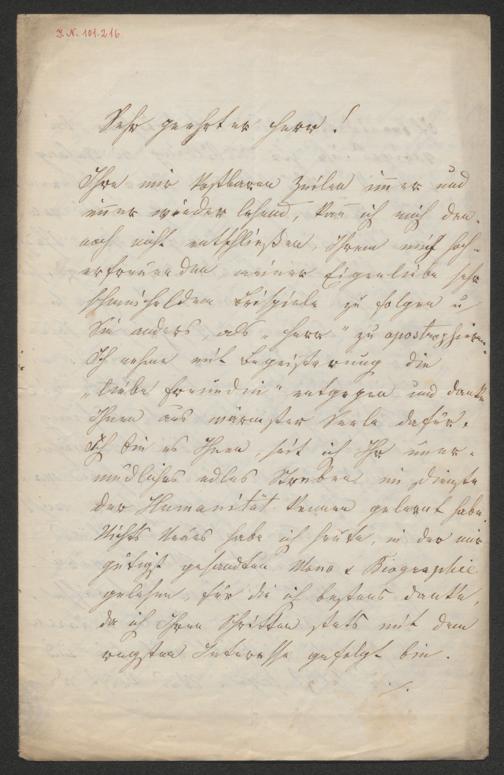 I. N. 101.216
Sehr geehrter Herr!
Ihre mir kostbaren Zeilen immer und
immer wieder lesend, kann ich mich den-
noch nicht entschließen, Ihrem mich hoch-
erfreuenden meiner Eigenliebe sehr
schmeichelnden Beispiele zu folgen u
Sie anders, als „Herr" zu apostrophieren.
Ich nehme mit Begeisterung die
„liebe Freundin" entgegen und danke
Ihnen aus wärmster Seele dafür.
Ich bin es Ihnen, seit ich Ihr uner-
müdliches edles Streben im Dienste
der Humanität kennen gelernt habe.
Nichts Neues habe ich heute, in der mir
gütigst gesandten Mono & Biographie
gelesen, für die ich bestens danke,
da ich Ihren Schritten stets mit dem
regsten Interesse gefolgt bin.
./.